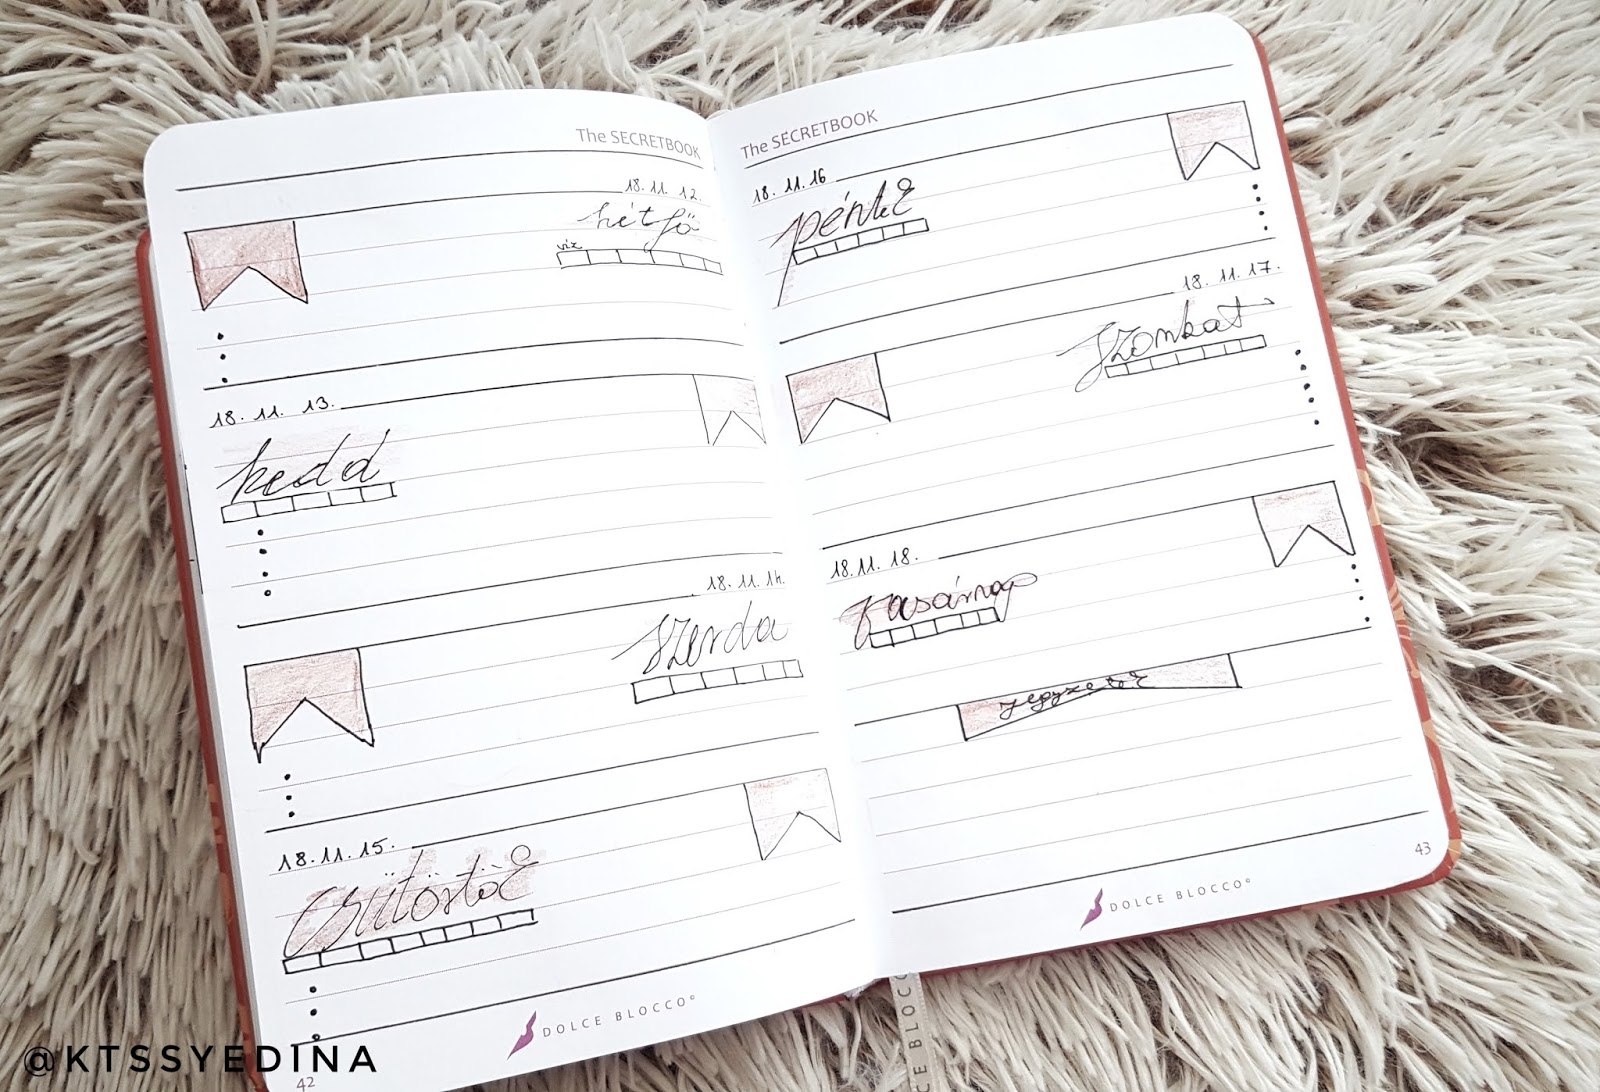 The SECRETBOOK
18. 11. 12.
hétfő
víz
18. 11. 13.
kedd
18. 11. 14.
szerda
18. 11. 15.
csütörtök
DOLCE BLOCCO®
42
The SECRETBOOK
18. 11. 16
péntek
18. 11. 17.
szombat
18. 11. 18.
vasárnap
jegyzetek
43
DOLCE BLOCCO®
@KTSSYEDINA